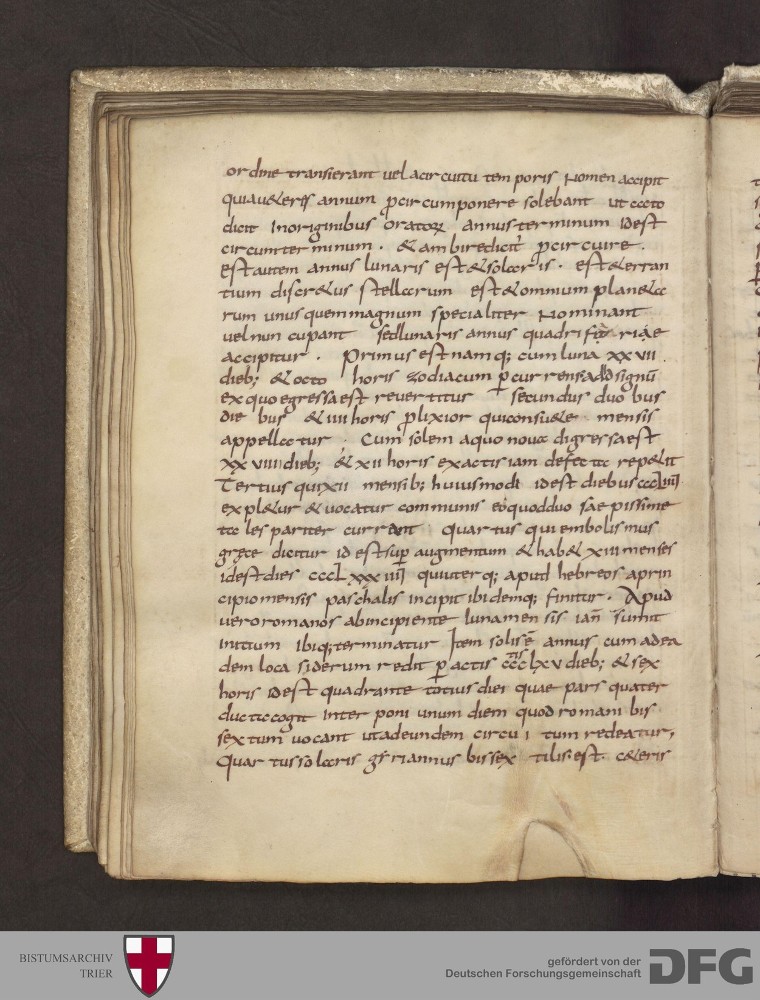 ordine transierant vel acircuitu temporis Nomen accipit
quia u&eres annum ꝓcircumponere solebant ut ccato
dicit Inoriginibus oratoꝝ annus terminum id est
circum terminum . & ambire dicit̄ ꝓcircuire .
est autem annus lunaris est & solaris . est & erran
tium discr&us stellarum est & omnium plan&a
rum unus quem magnum specialiter Nominant
uel nun cupant sed lunaris annus quadri
accipitur . Primus est namq; cum luna xxvii .
dieb; & octo horis zodiacum ꝑcurrens ad signū
ex quo egressa est reuertitur secundus duobus
diebus & iiii horis ꝓlixior qui consu&e mensis
appellatur . Cum solem aquo noua digressa est
xxviiii dieb; & xii horis exactis iam defecta rep&it
Tertius qui xii mensib; huiusmodi id est diebus cccliiii
expl&ur & uocatur communis eo quod duo saepissime
tales pariter currant quartus qui embolismus
grece dicitur id est suꝑ augmentum & hab& xiii menses
id est dies ccclxxxiiii quiuterq; apud hebreos aprin
cipio mensis paschalis incipit ibidemq; finitur . Apud
uero romanos ab incipiente luna mensis ian̄ sumit
initium Ibiq; terminatur Item solis ē annus cum adea
dem loca siderum redit ꝑactis ccclxv dieb; & sex
horis id est quadrante totius diei quae pars quater
ducta cogit inter poni unum diem quod romani bis
sextum uocant ut adeundem circuitum redeatur,
Quartus solaris annus bissextilis est . c&eris
BISTUMSARCHIV
TRIER
gefördert von der
Deutschen Forschungsgemeinschaft
DFG